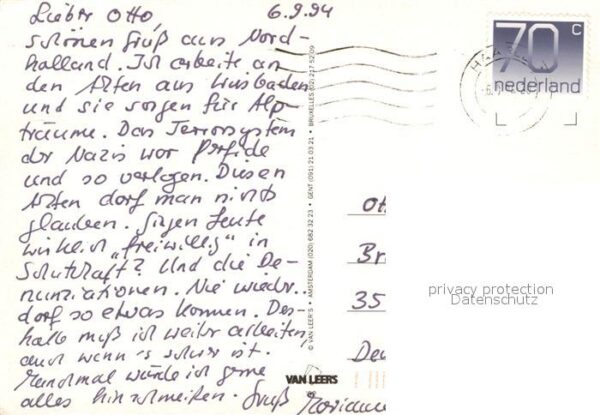 Lieber Otto, 6.9.94
schönen Gruß aus Nord-
holland. Ich arbeite an
den Akten aus Wiesbaden
und sie sorgen für Alp-
träume. Das Terrorsystem
der Nazis war perfide
und so verlogen. Diesen
Akten darf man nicht
glauben. Gingen Leute
wirklich „freiwillig" in
Schutzhaft? Und die De-
nunziationen. Nie wieder
darf so etwas kommen. Des-
halb muß ich weiter arbeiten,
auch wenn's schwer ist.
Manchmal würde ich gerne
alles hinschmeißen. Gruß Marianne
© VAN LEER'S • AMSTERDAM (020) 682 32 23 • GENT (091) 21 03 21 • BRUXELLES (02) 217 52 09
VAN LEERS
70 c
nederland
Ot
Br
35
Deu
privacy protection
Datenschutz